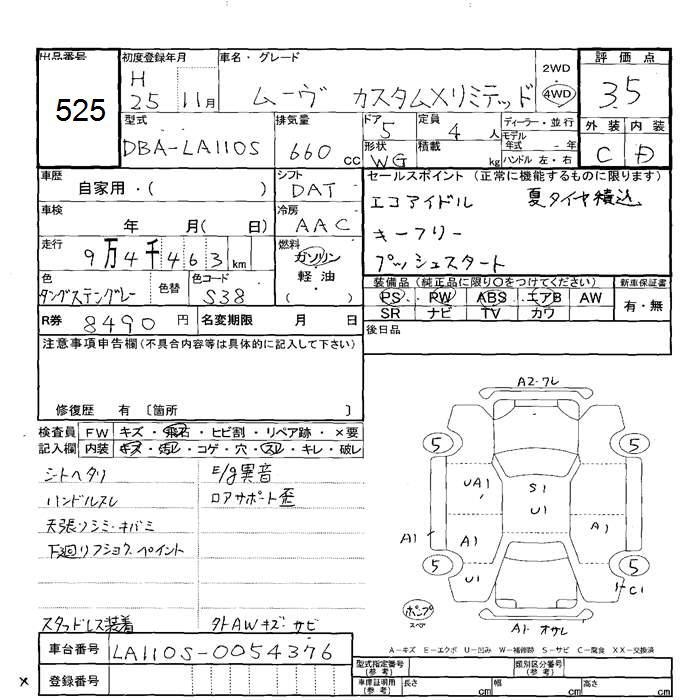 出品番号 初度登録年月 車名・グレード 2WD 評価点
525 H 25 11月 ムーヴ カスタムXリミテッド 4WD 3.5
型式 排気量 ドア 5 定員 4 人 ディーラー・並行 外装 内装
DBA-LA110S 660 cc 形状 WG 積載 kg モデル年式 - 年 C D
ハンドル 左・右
車歴 自家用・( ) シフト DAT セールスポイント (正常に機能するものに限ります)
車検 年 月( 日) 冷房 AAC エコアイドル 夏タイヤ積込
走行 9万4千463km 燃料 ガソリン 軽油 ( ) キーフリー
プッシュスタート
色 タングステングレー 色替 色コード S38 装備品 (純正品に限り○をつけてください) 新車保証書
PS PW ABS エアB AW 有・無
R券 8490円 名変期限 月 日 SR ナビ TV カワ
注意事項申告欄(不具合内容等は具体的に記入して下さい) 後日品
修復歴 有 〔箇所 〕
検査員 FW キズ・飛石・ヒビ割・リペア跡・×要
記入欄 内装 キズ・汚レ・コゲ・穴・スレ・キレ・破レ
シートヘタリ E/g異音
ハンドルスレ ロアサポート歪
天張リシミ・キバミ
下廻リフショク、ペイント
スタッドレス装着 タトAWキズ・サビ
A2・ワレ
5 5
UA1 S1
U1
A1 A1 A1
5 5
U1 C1
ポンプ
スペア
A1・オサレ
A-キズ E-エクボ U-凹み W-補修跡 S-サビ C-腐食 XX-交換済
車台番号 LA110S-0054376 型式指定番号 (参考) 類別区分番号 (参考)
× 登録番号 車庫証明用 (参考) 長さ cm 幅 cm 高さ cm